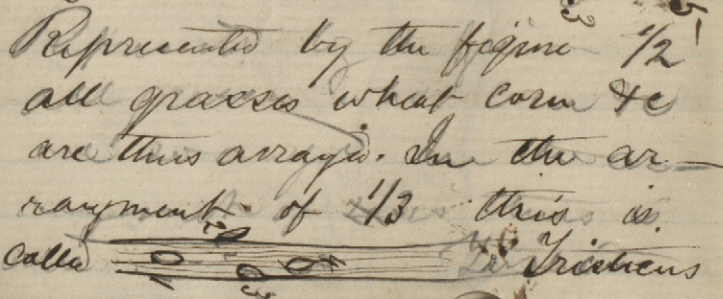 Represented by the figure 1/2
all grasses wheat corn &c
are thus arrayd. In the ar-
rangment of 1/3 this is
called Tristicus